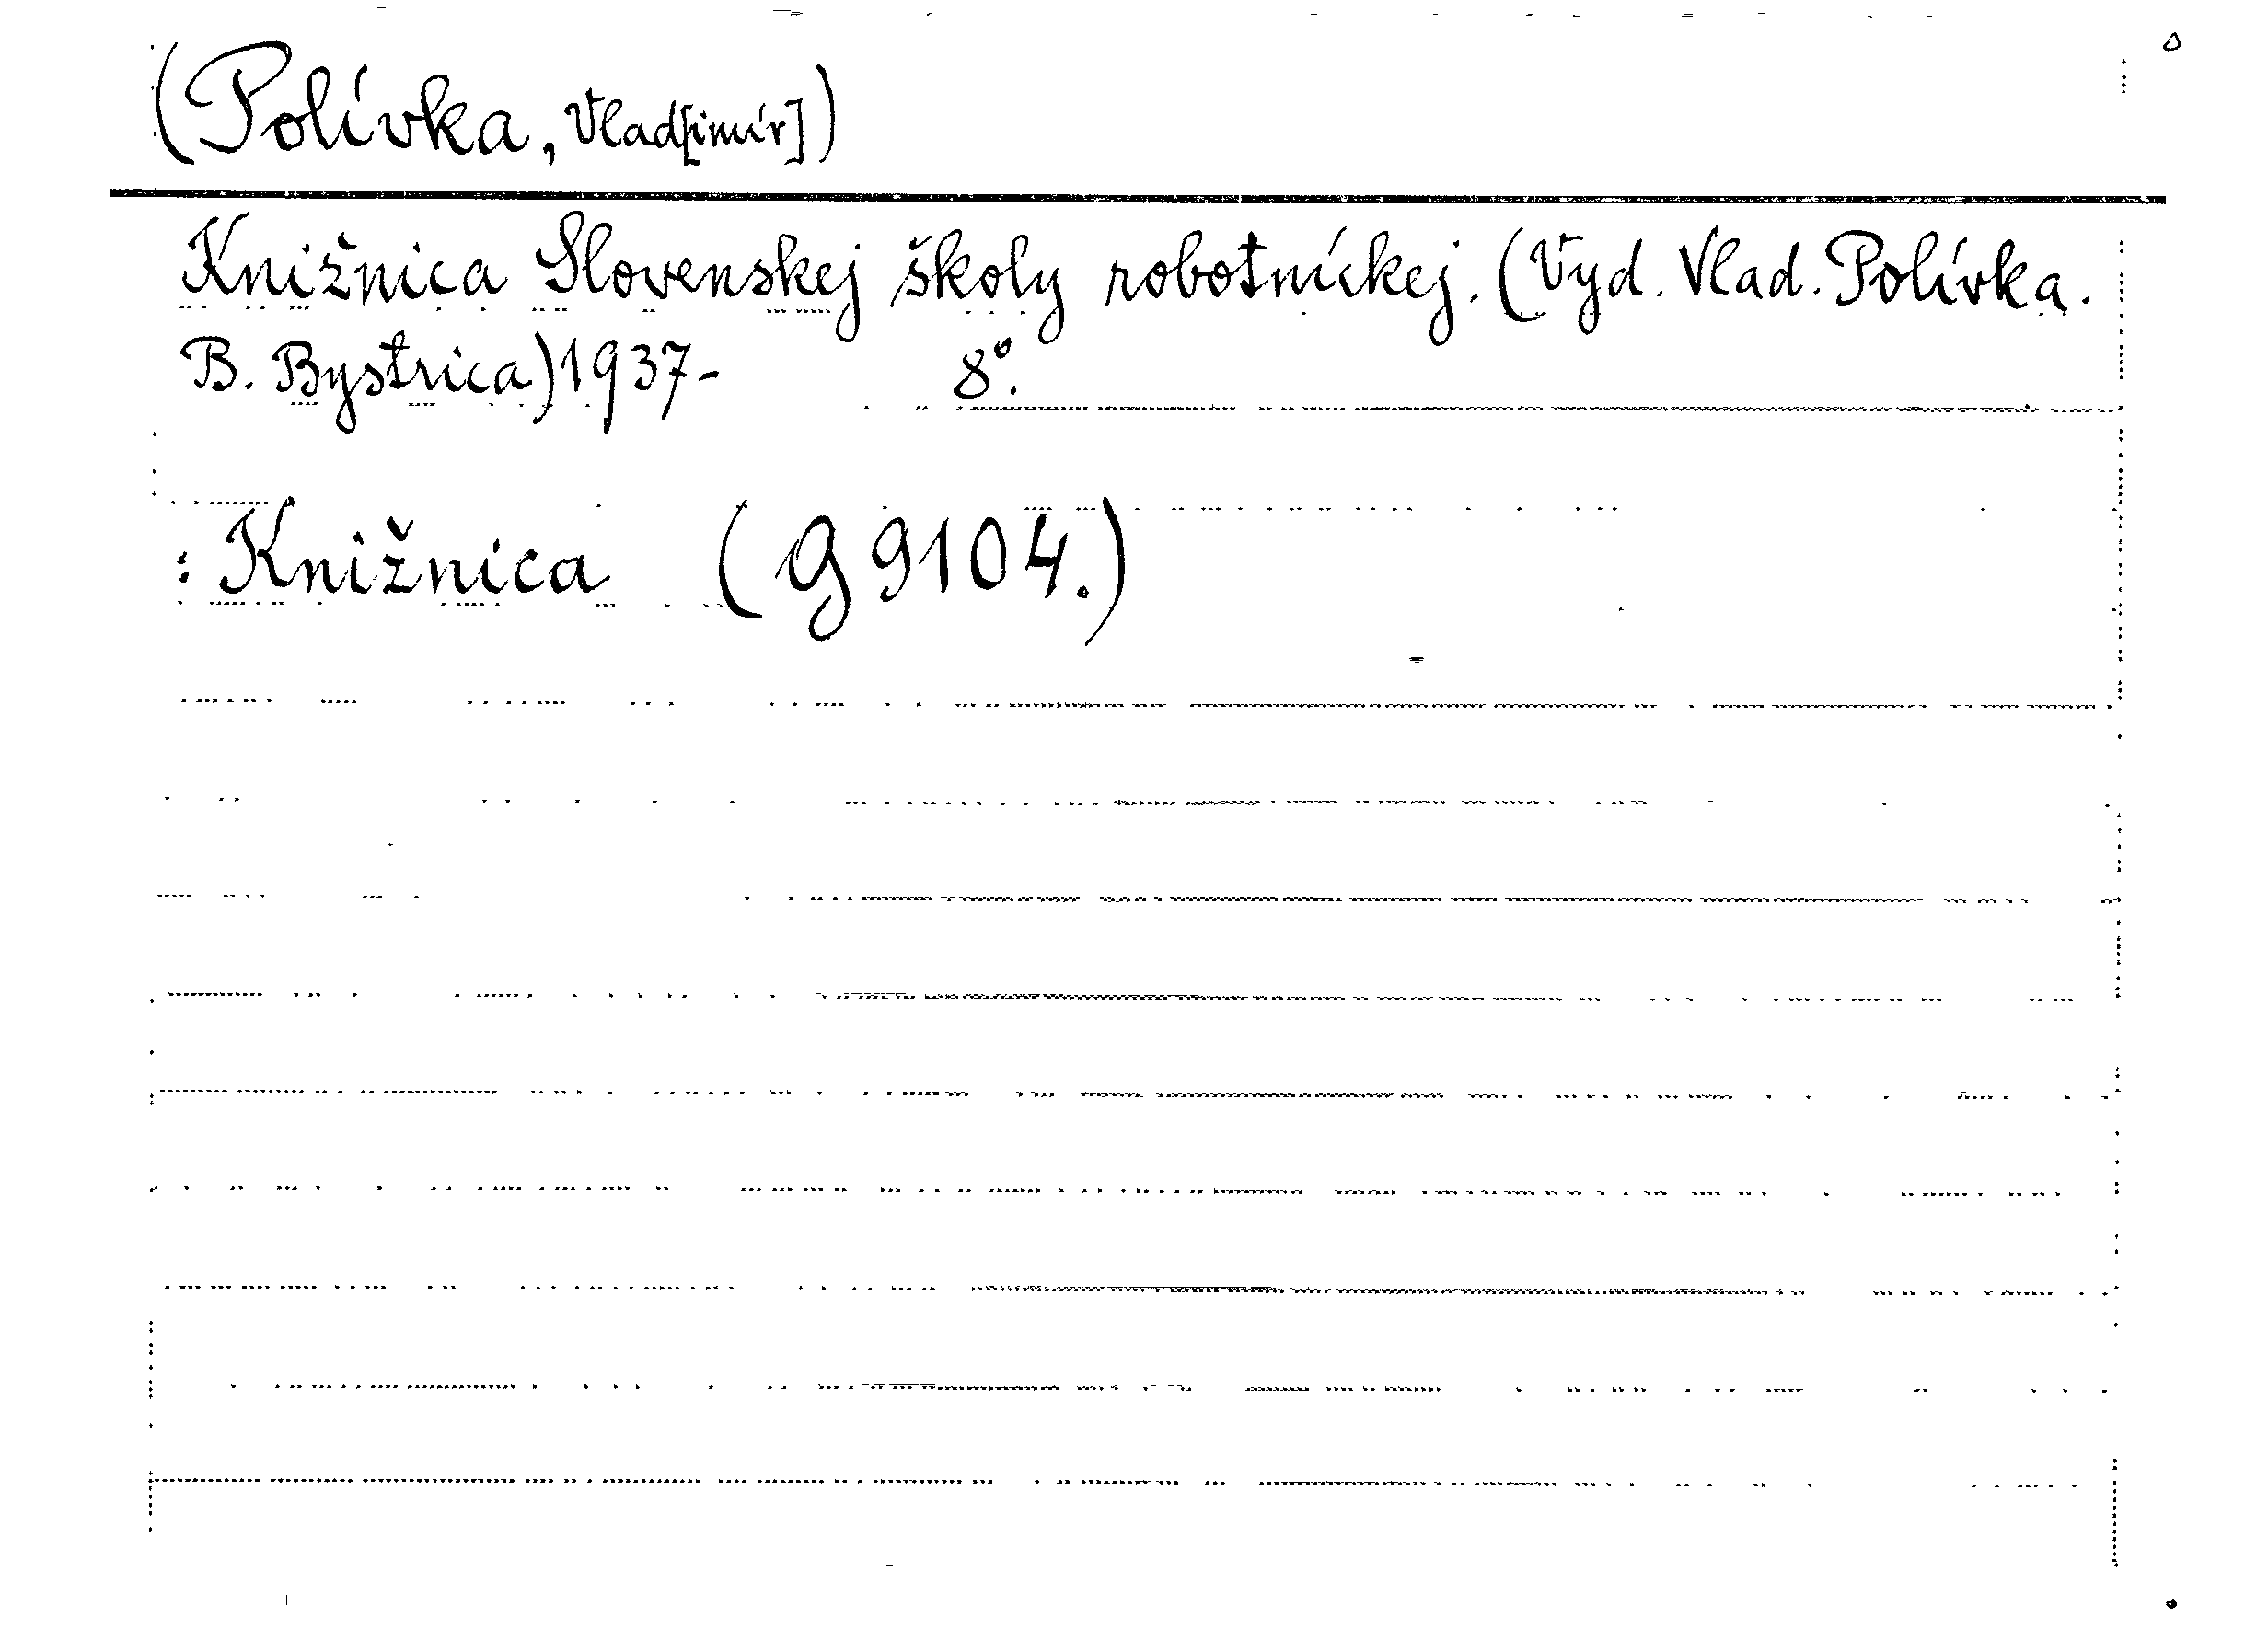 (Polívka, Vlad[imír])
Knižnica Slovenskej školy robotníckej. (Vyd. Vlad. Polívka.
B. Bystrica) 1937- 8°.
: Knižnica (G 9104.)